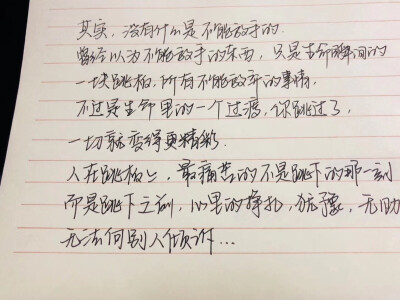 其实，没有什么是不能放手的.
曾经以为不能放手的东西，只是生命瞬间的
一块跳板，所有不能放弃的事情，
不过是生命里的一个过渡，你跳过了，
一切就变得更精彩.
人在跳板上，最痛苦的不是跳下的那一刻
而是跳下之前，心里的挣扎，犹豫，无助
无法向别人倾诉...